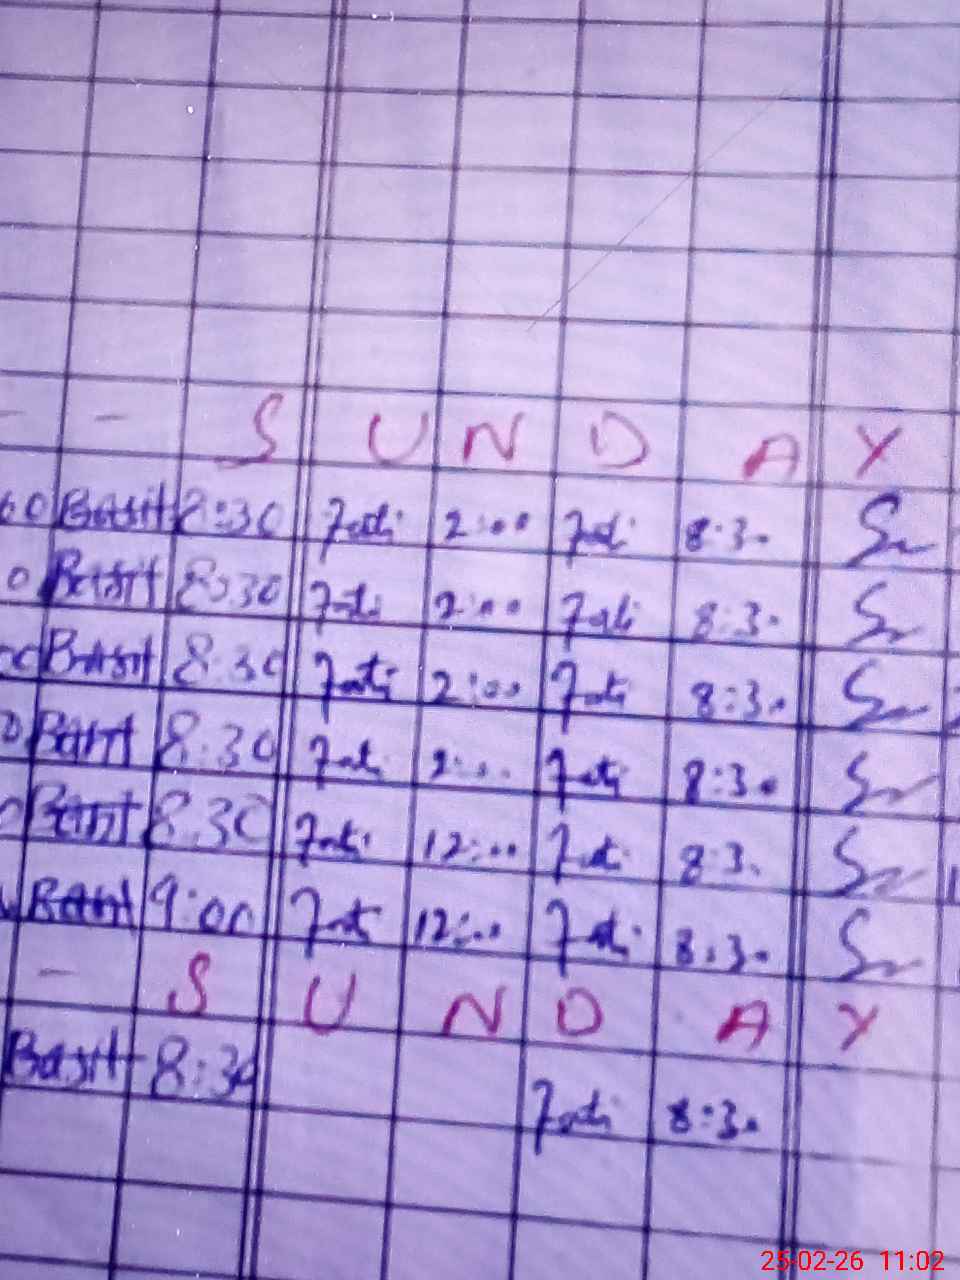 - - S U N D A Y
Basit 8:30 Fati 2:00 Fati 8:30
0 Basit 8:30 Fati 2:00 Fati 8:30
Basit 8:30 Fati 2:00 Fati 8:30
Basit 8:30 Fati 2:00 Fati 8:30
Basit 8:30 Fati 12:00 Fati 8:30
Basit 9:00 Fati 12:00 Fati 8:30
- S U N D A Y
Basit 8:30 Fati 8:30
25-02-26 11:02